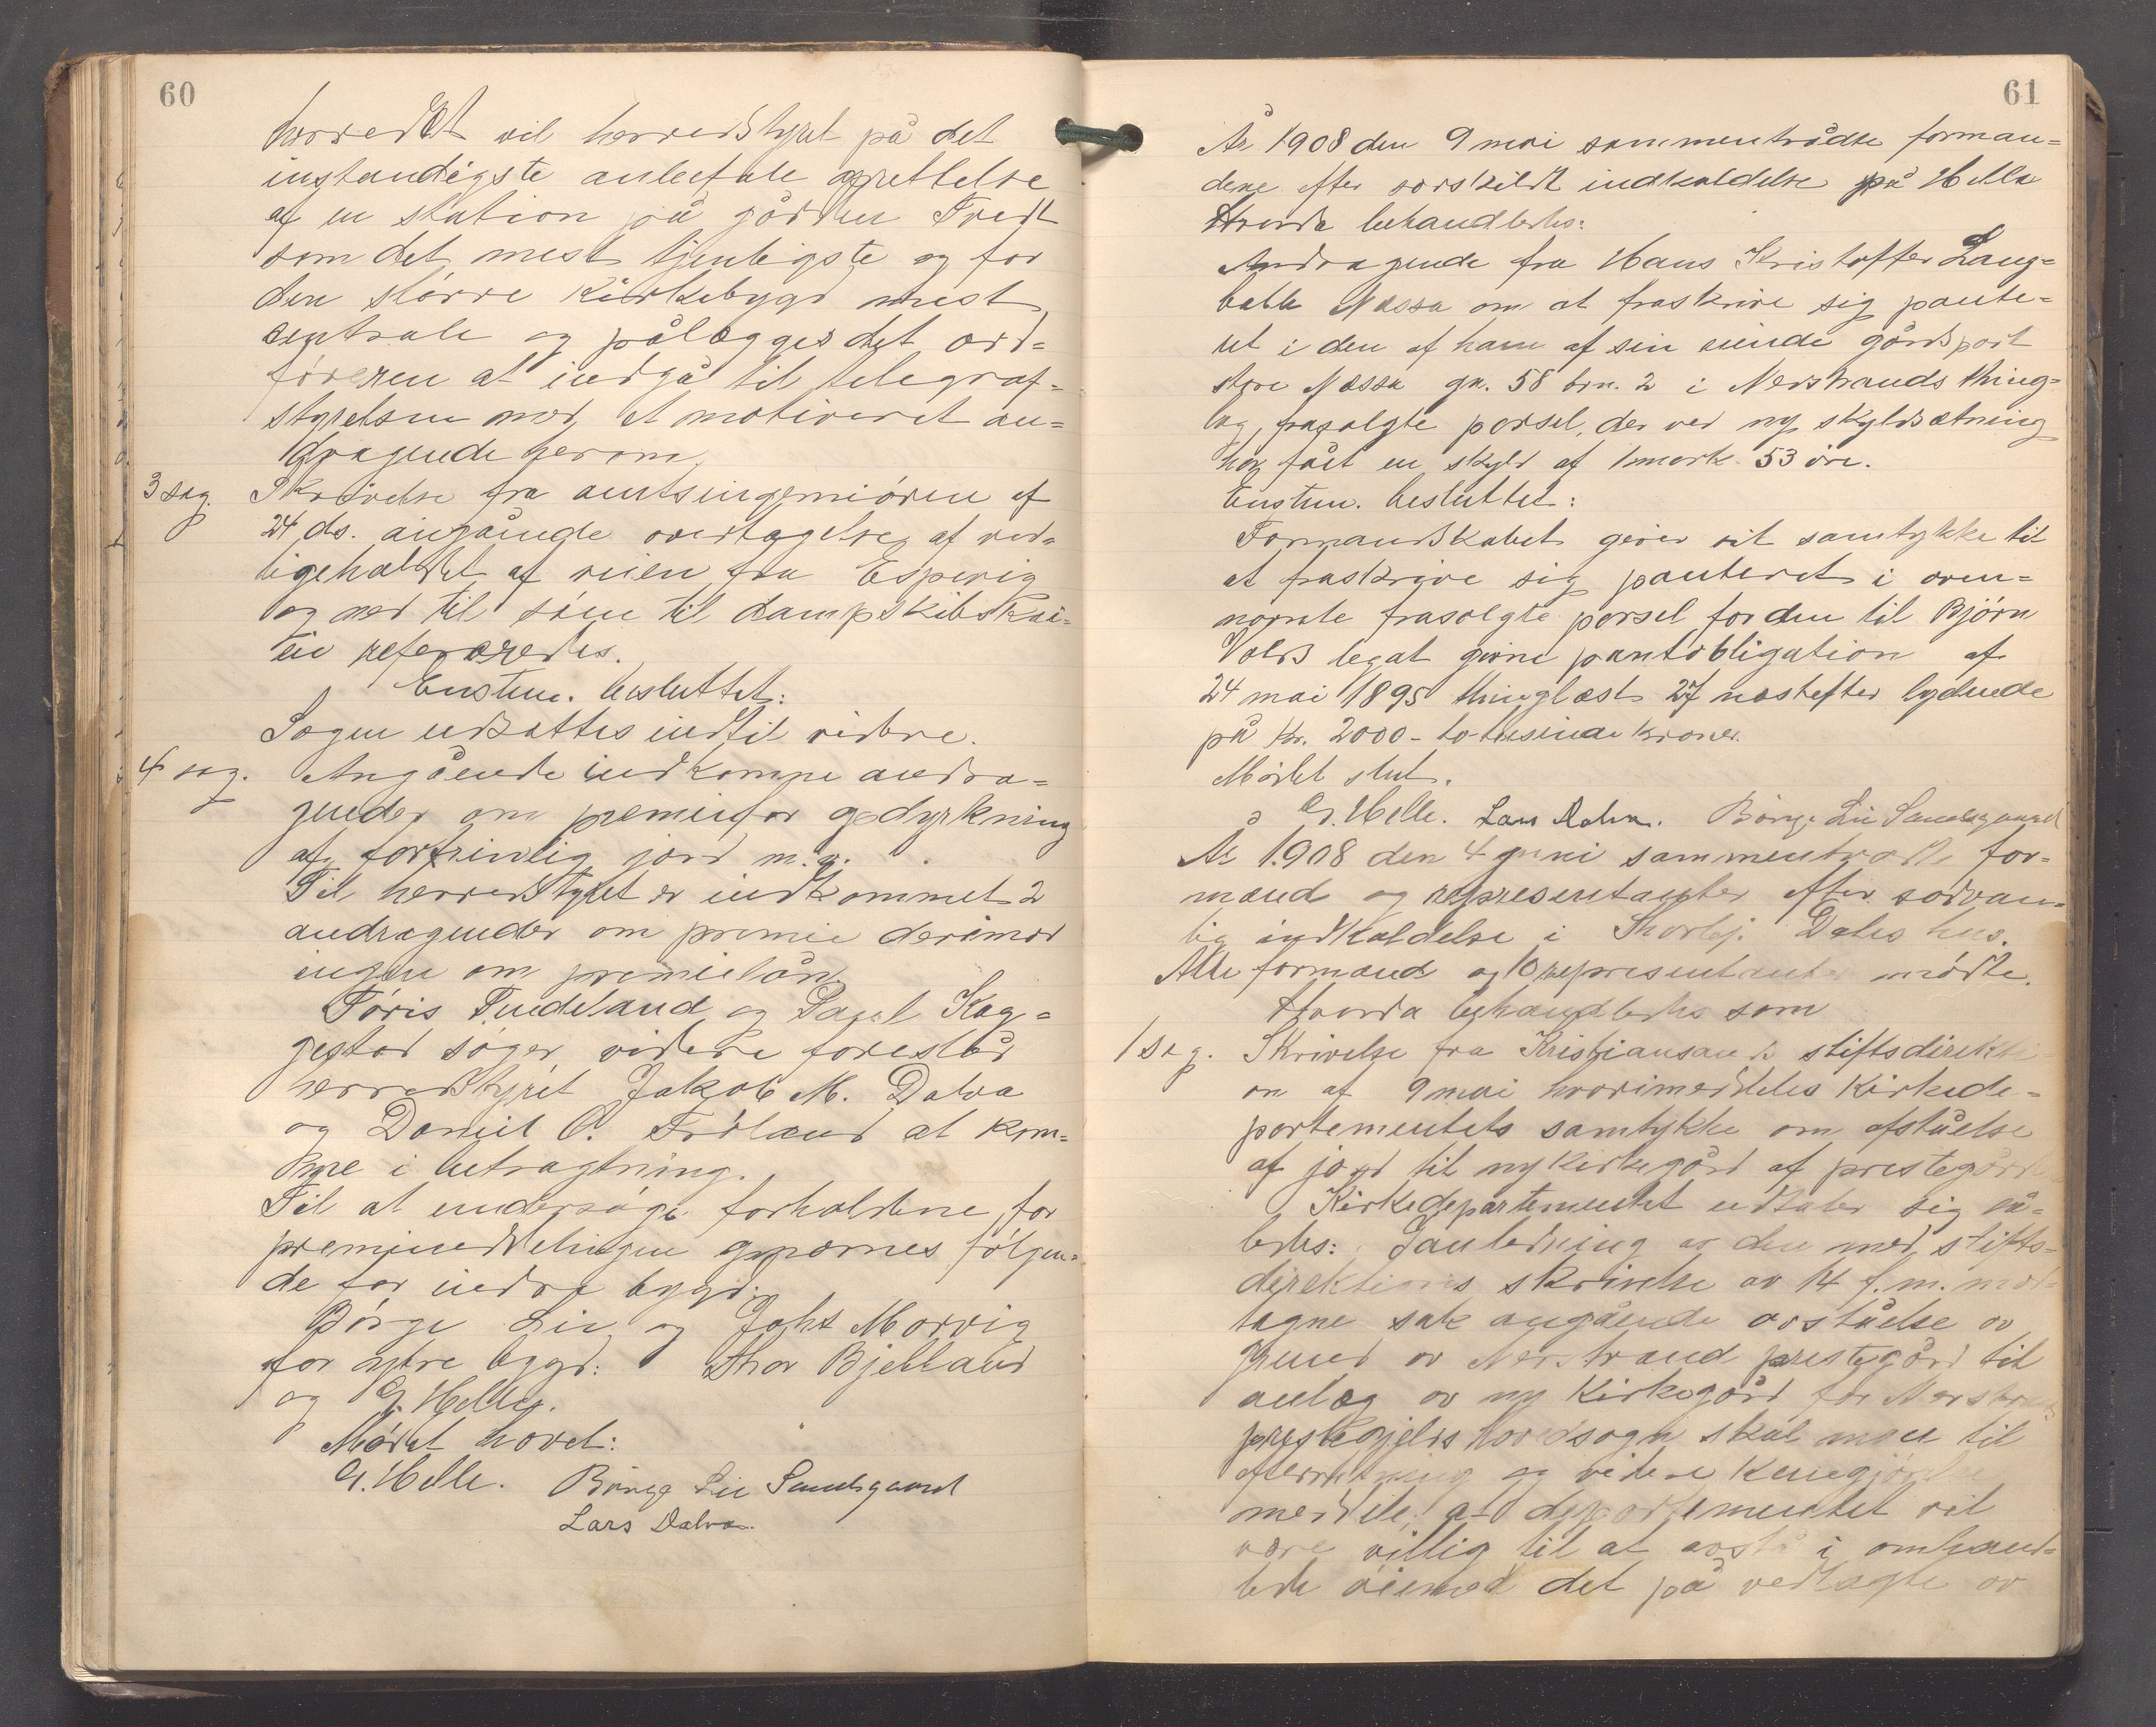 60
herredet vil herredstyret på det
instændigste anbefale oprettelse
af en station på gården Tvedt
som det mest tjenligste og for
den større kirkebygd mest
centrale og pålægges det ord=
føreren at indgå til telegraf=
styrelsen med et motiveret an=
dragende herom.
3 sag. Skrivelse fra amtsingeniøren af
24 ds. angående overtagelse af ved=
ligeholdet af veien fra Espevig
og ned til søen til dampskibskai=
en refereredes.
Enstem. besluttet:
Sagen udsattes indtil videre.
4 sag. Angående indkomne andra=
gender om premie for opdyrkning
af fortrinlig jord m.v.
Til herredstyret er indkommet 2
andragender om premie derimod
ingen om premielån
Tøris Tindeland og Paul Kag=
gestad søger, videre foreslår
herredstyret Jakob M. Dalva
og Daniel O. Frøland at kom=
me i betragtning.
Til at undersøge forholdene for
premieuddelingen opnævnes følgen=
de for indre bygd:
Børge Lie og Johs Morvig
for ytre bygd: Thor Bjelland
og G. Helle.
Mødet hævet:
G. Helle. Børge Lie Sandsgaard
Lars Dalva.
61
År 1908 den 9 mai sammentrådte forman=
dene efter særskildt indkaldelse på Helle
Hvorda behandledes:
Andragende fra Hans Kristoffer Lang=
balle Næssa om at fraskrive sig pante=
ret i den af ham af sin eiende gårdspart
store Næssa gn. 58 brn. 2 i Nerstrands thing=
lag, frasolgte parsel, der ved ny skyldsætning
har fået en skyld af 1 mark 53 øre.
Enstem. besluttet:
Formandskabet giver sit samtykke til
at fraskrive sig panteret i oven=
nævnte frasolgte parsel for den til Bjørn
Volds legat givne pantobligation af
24 mai 1895 thinglæst 27 næstefter lydende
på kr. 2000 - totusinde kroner.
Mødet slut.
G. Helle. Lars Dalva. Børge Lie Sandsgaard
År 1908 den 4 juni sammentrådte for=
mænd og representanter efter sædvan=
lig indkaldelse i Thorbj. Dales hus.
Alle formænd og 10 representanter mødte.
Hvorda behandledes som
1 sag. Skrivelse fra Kristiansands stiftsdirekti=
on af 9 mai hvori meddeles Kirkede=
partementets samtykke om afståelse
af jord til ny kirkegård af prestegården
Kirkedepartementet udtaler sig så=
ledes: I anledning av den med stifts=
direktions skrivelse av 14 f.m. mot=
tagne sak angående avståelse av
grund av Nerstrand prestegård til
anlæg av ny kirkegård for Nerstrands
prestegjelds hovedsogn skal man til
efterretning og videre kundgjørelse
meddele, at departementet vil
være villig til at avstå i omhand=
lede øiemed det på vedlagte av